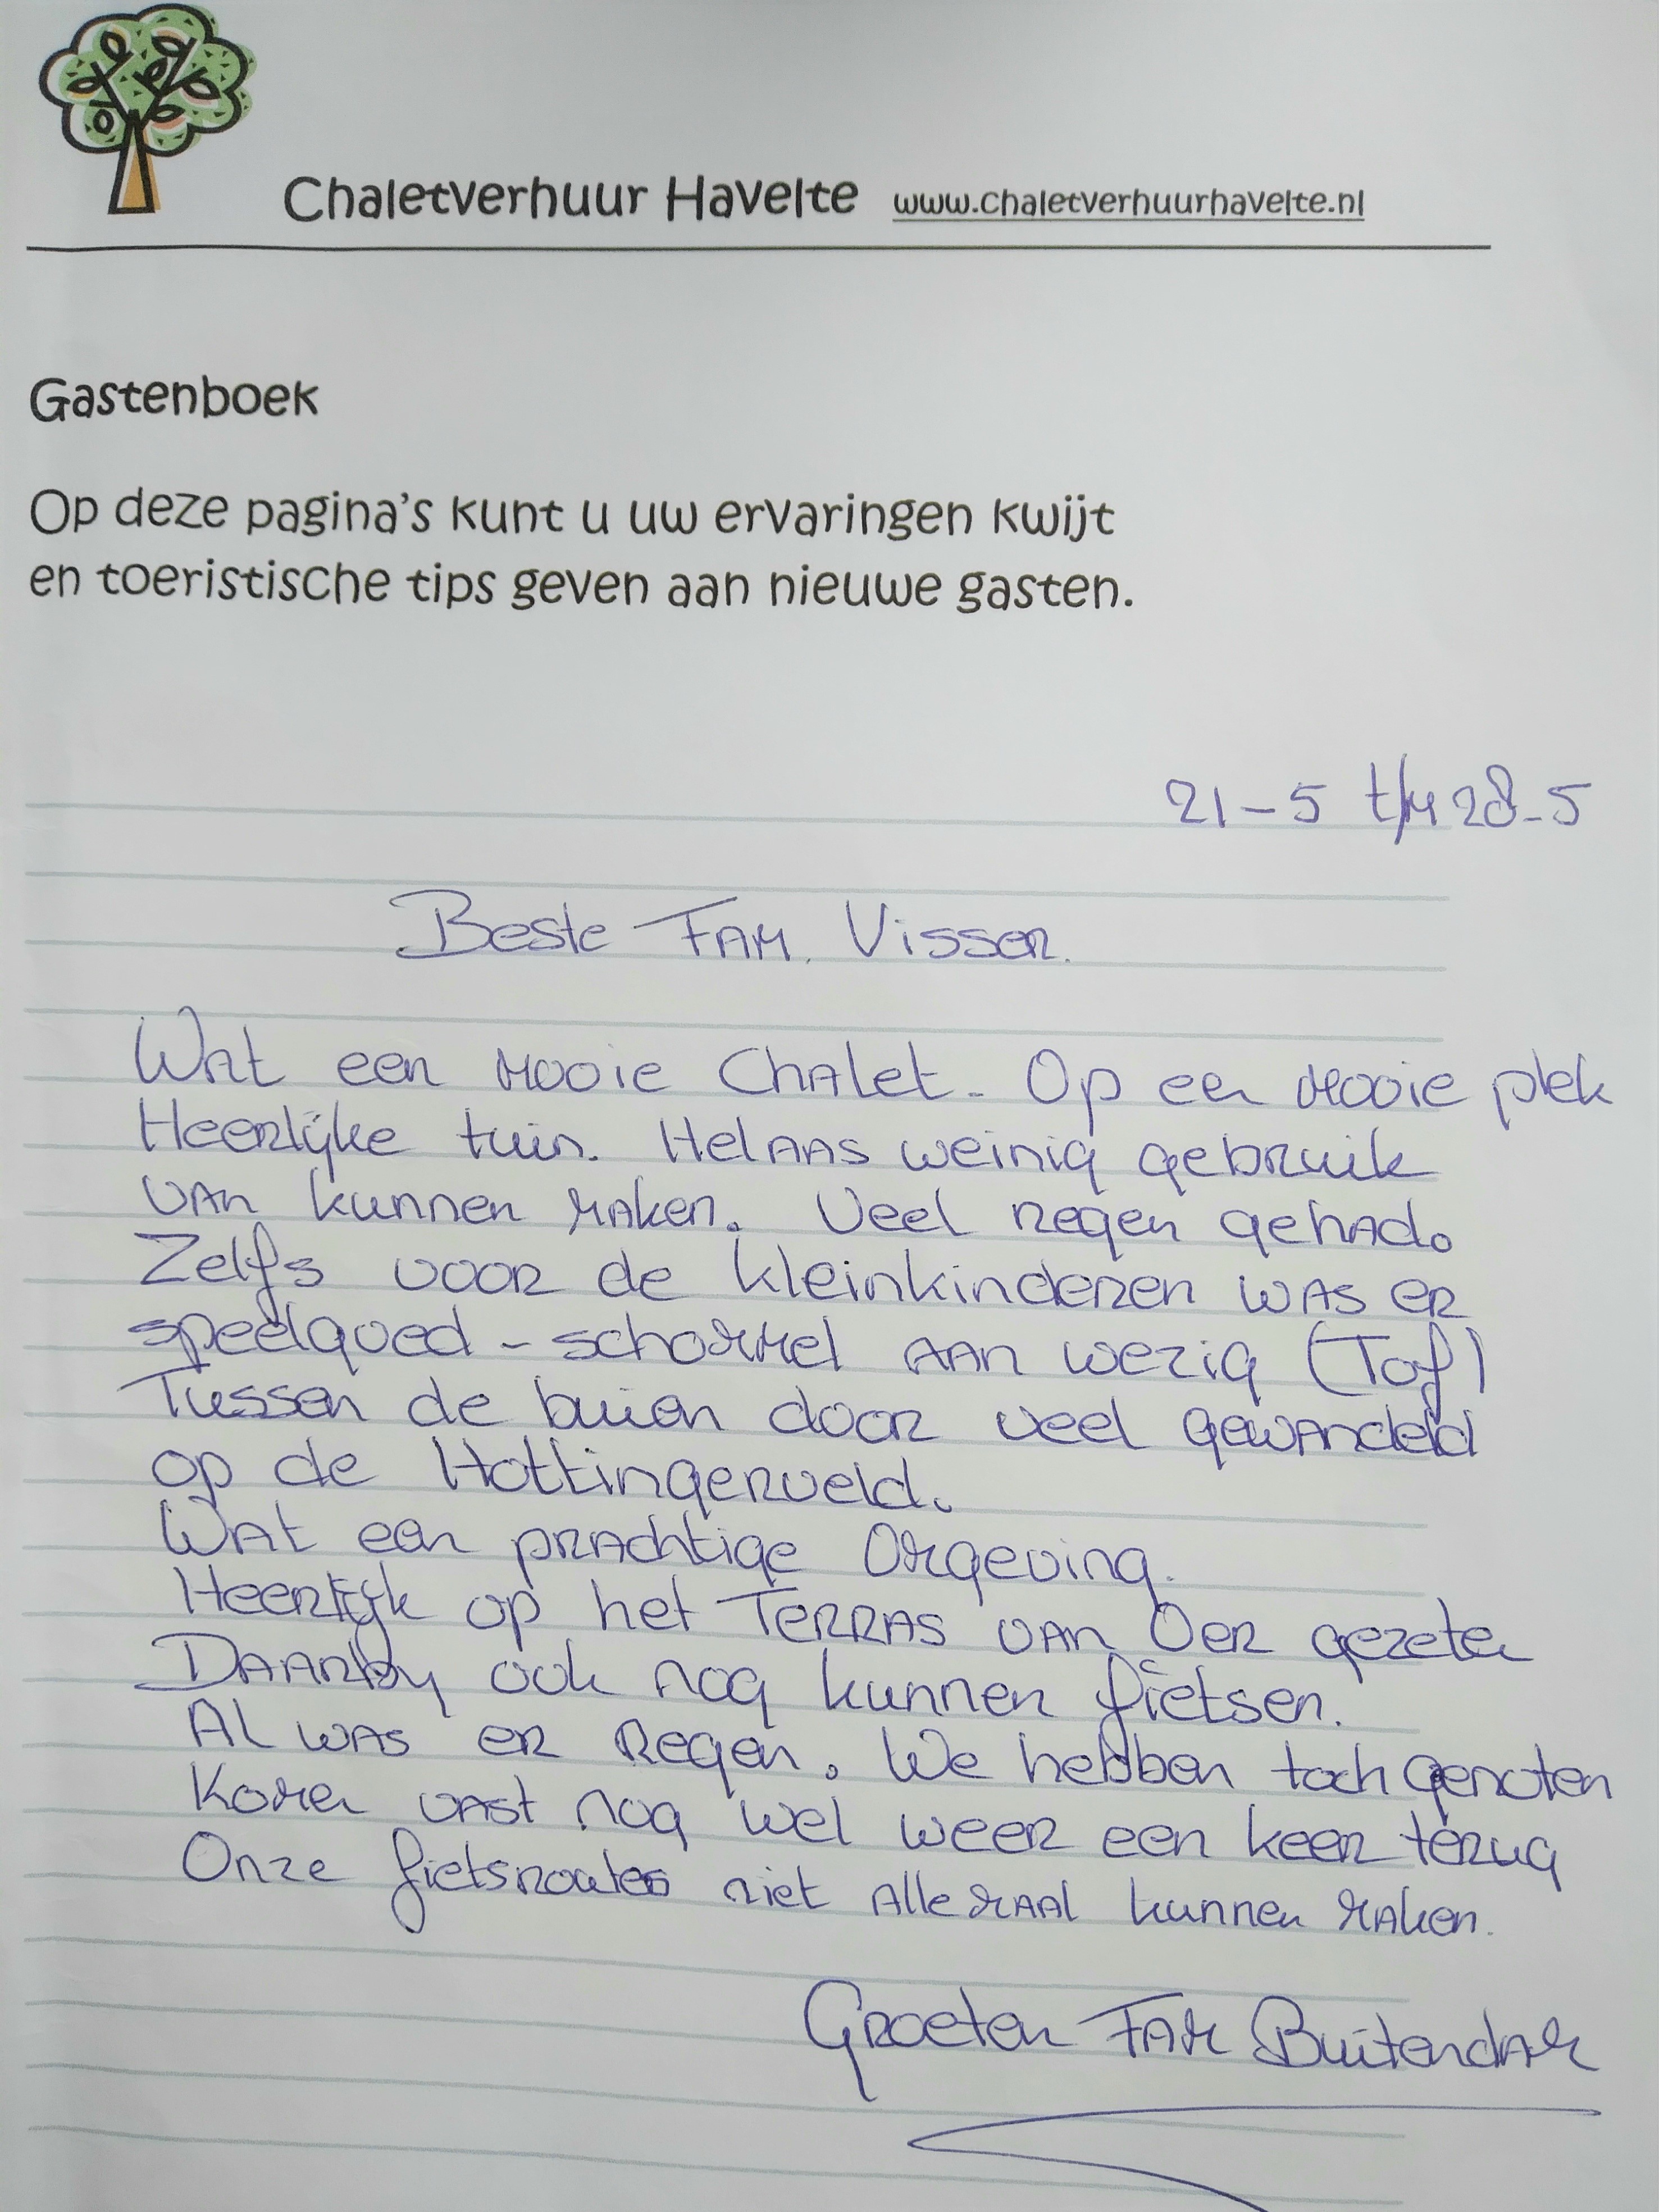 Chaletverhuur Havelte www.chaletverhuurhavelte.nl
Gastenboek
Op deze pagina's kunt u uw ervaringen kwijt
en toeristische tips geven aan nieuwe gasten.
21-5 t/m 28-5
Beste Fam. Visser.
Wat een mooie Chalet. Op een mooie plek
Heerlijke tuin. Helaas weinig gebruik
van kunnen maken. Veel regen gehad.
Zelfs voor de kleinkinderen was er
speelgoed - schommel aan wezig (Tof)
Tussen de buien door veel gewandeld
op de Holtingerveld.
Wat een prachtige Omgeving.
Heerlijk op het Terras van Oer gezeten
Daarby ook nog kunnen fietsen.
Al was er Regen. We hebben toch genoten
Komen vast nog wel weer een keer terug
Onze fietsroutes niet allemaal kunnen maken.
Groeten Fam Buitendam